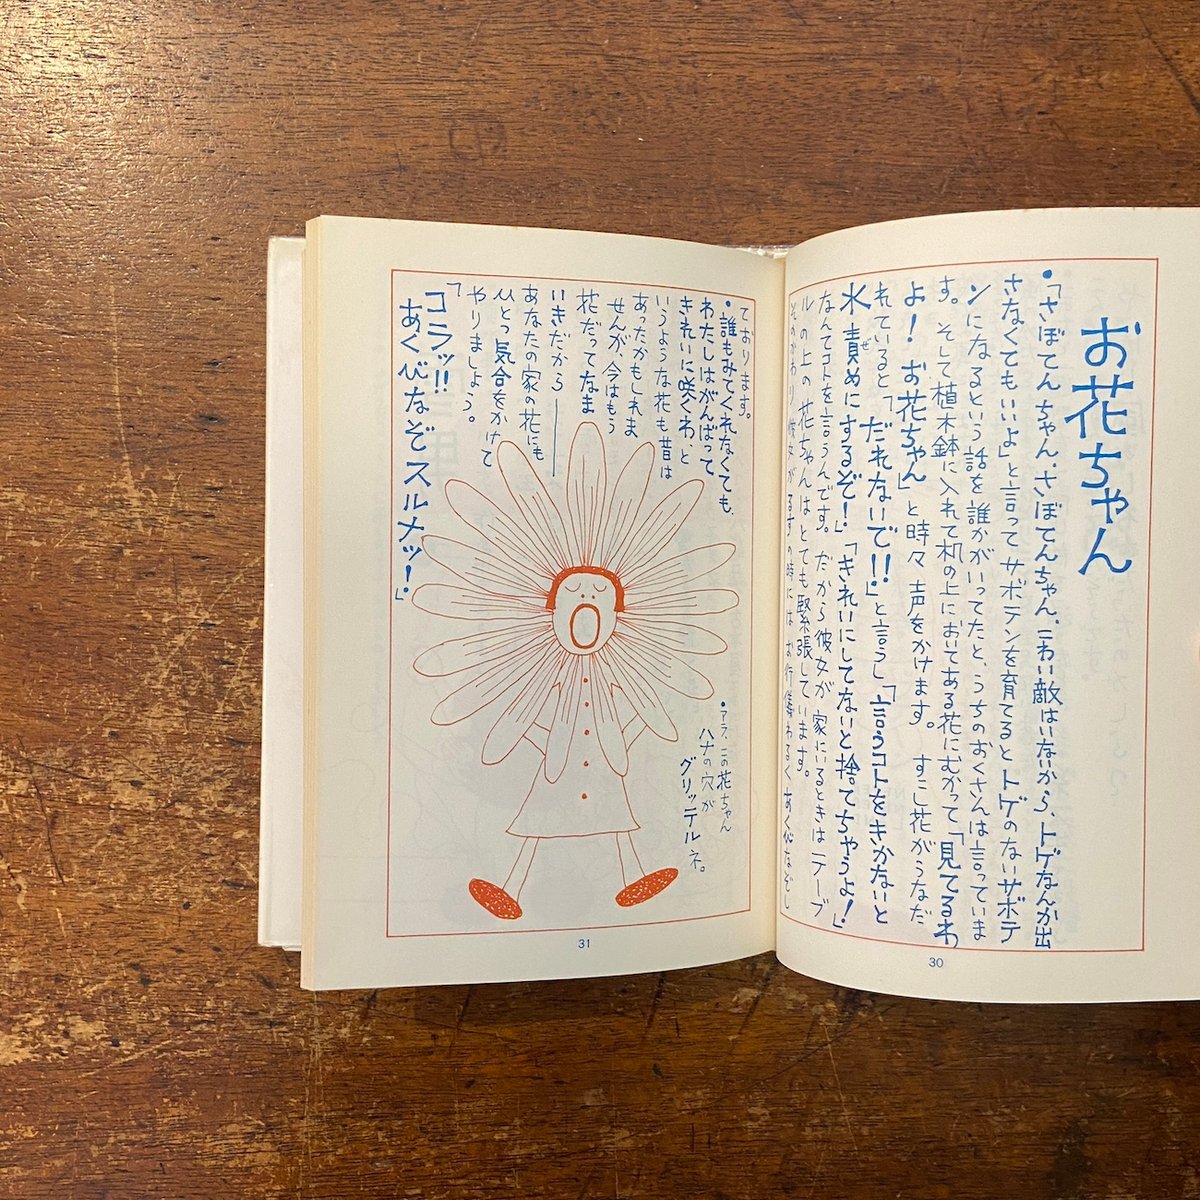 お花ちゃん
・「さぼてんちゃん、さぼてんちゃん、こわい敵はいないから、トゲなんか出
さなくてもいいよ」と言ってサボテンを育てるとトゲのないサボテ
ンになるという話を誰かがいってたと、うちのおくさんは言っていま
す。そして植木鉢に入れて机の上においてある花にむかって「見てるわ
よ！お花ちゃん」と時々声をかけます。すこし花がうなだ
れていると「だれないで!!」と言うし「言うコトをきかないと
水責めにするぞ！」「きれいにしてないと捨てちゃうよ！」
ぜ
なんてコトを言うんです。だから彼女が家にいるときはテーブ
ルの上の花ちゃんはとても緊張しています。
そのかわり彼女がるすの時にはお行儀わるくあくびなぞし
30
ております。
・誰もみてくれなくても、
わたしはがんばって
きれいに咲くわ、と
いうような花も昔は
あったかもしれま
せんが、今はもう
花だってなま
いきだから――
あなたの家の花にも
ひとつ気合をかけて
やりましょう。
「コラッ!!
あくびなぞスルナッ！」
・アラ、この花ちゃん
ハナの穴が
グリッテルネ。
31